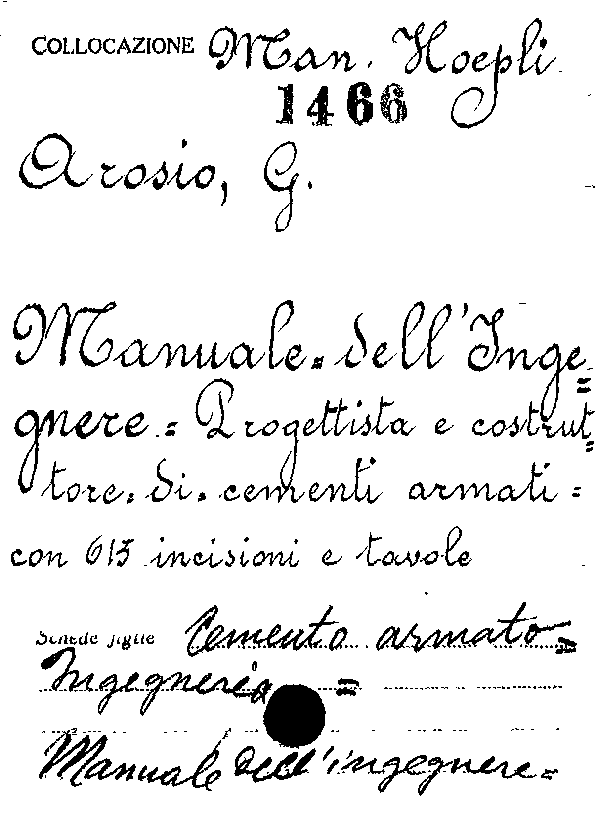 COLLOCAZIONE Man. Hoepli
1466
Arosio, G.
Manuale=dell'Inge=
gnere= Progettista e costrut=
tore=di=cementi armati=
con 613 incisioni e tavole
Schede figlie Cemento armato=
Ingegneria =
Manuale dell'ingegnere=